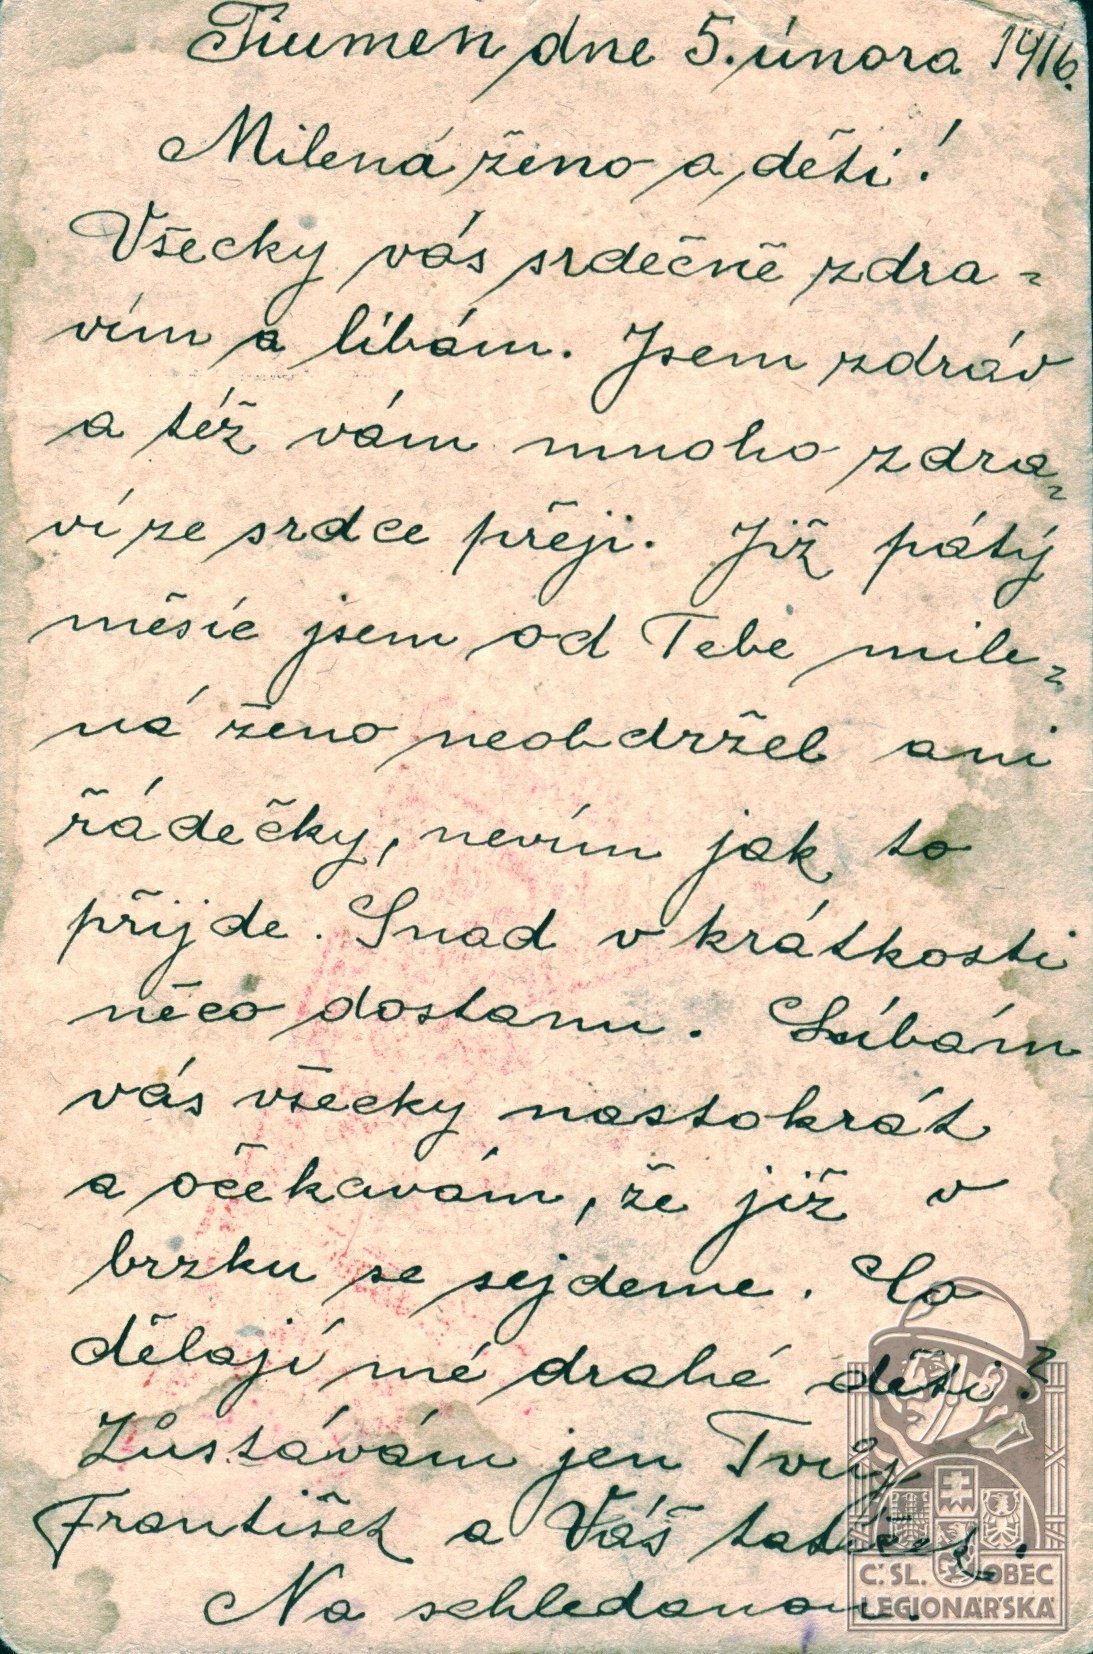 Tiumen dne 5. února 1916.
Milená ženo a děti!
Všecky vás srdečně zdra-
vím a líbám. Jsem zdráv
a též vám mnoho zdra-
ví ze srdce přeji. Již pátý
měsíc jsem od Tebe mile-
ná ženo neobdržel ani
řádečky, nevím jak to
přijde. Snad v krátkosti
něco dostanu. Líbám
vás všecky nastokrát
a očekavám, že již v
brzku se sejdeme. Co
dělají mé drahé děti?
Zůstávám jen Tvůj
František a Váš tatíček.
Na schledanou.
Č. SL. OBEC
LEGIONÁŘSKÁ